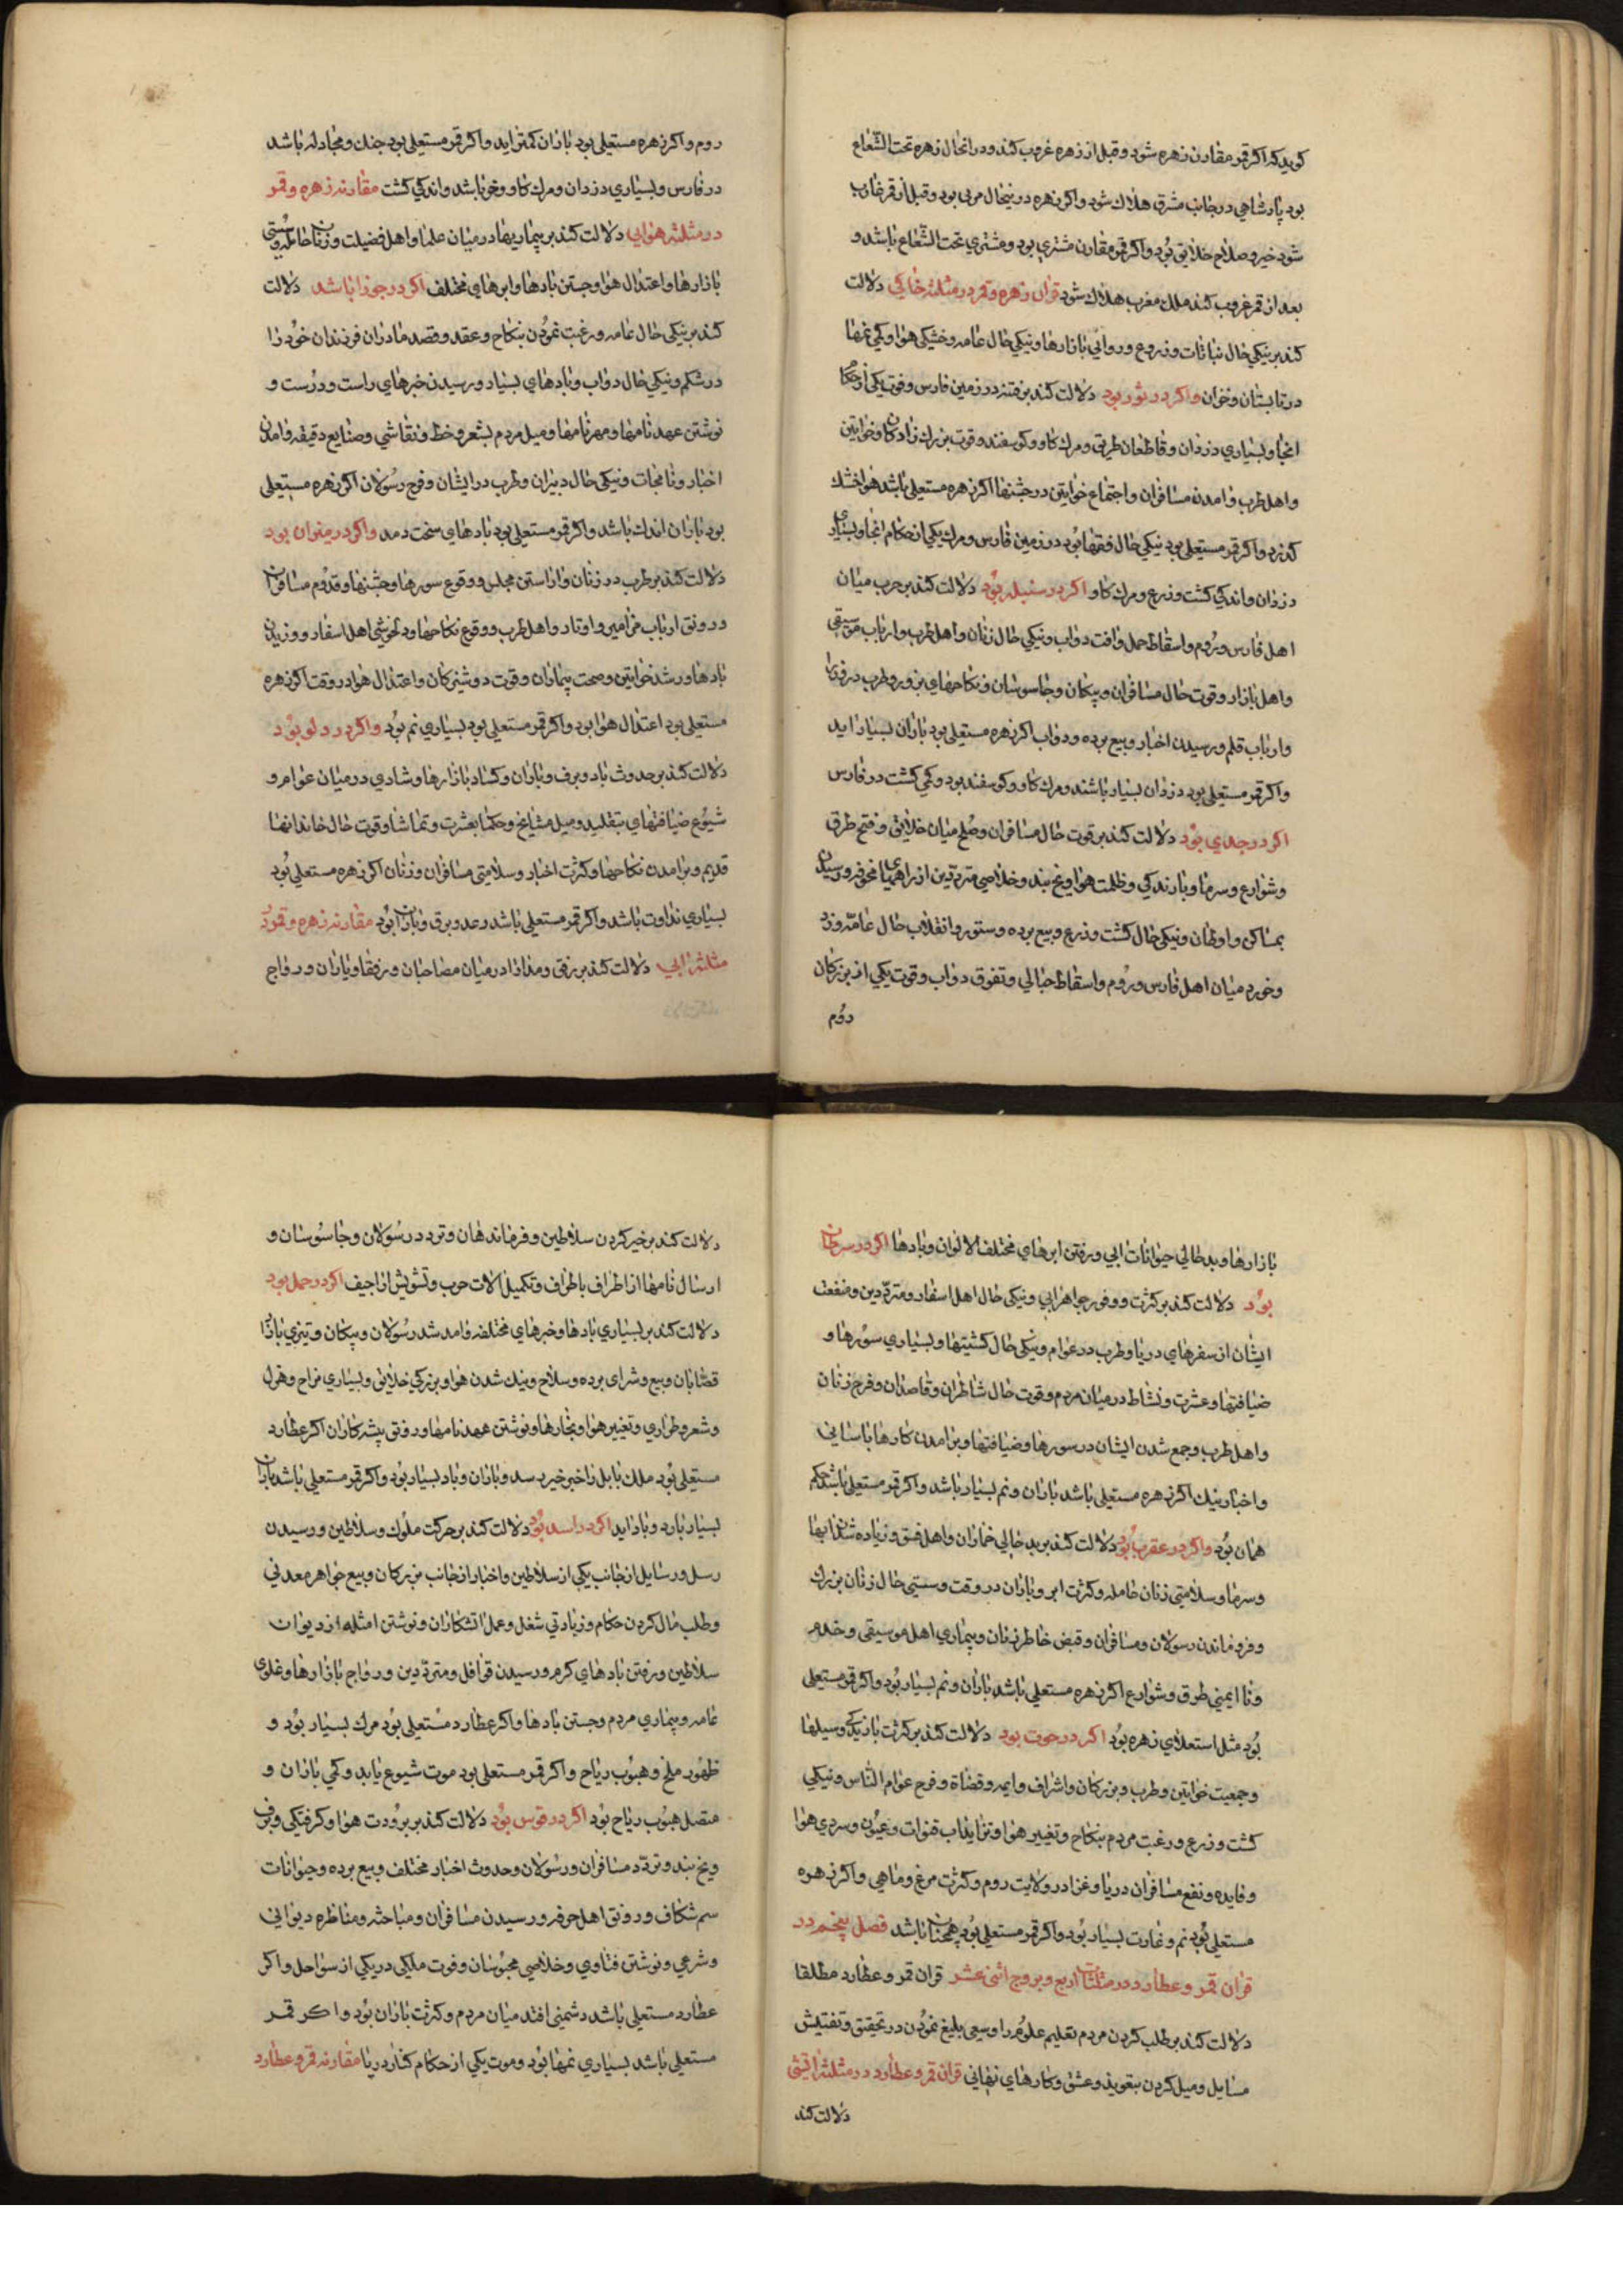 کوید که اکر قمر مقارن زهره شود و قبل از زهره غروب کند و در انحال زهره تحت الشّعاع
بود پادشاهی در جانب مشرق هلاک شود و اکر زهره در ینحال مربی بود و قبل از قمر غارب
شود خیر و صلاح خلایق بُود و اکر قمر مقارن مشتری بود و مشتری تحت الشّعاع باشد و
بعد از قمر غروب کند ملک مغرب هلاک شود قران زهره و قمر در مثلثه خاکی دلالت
کند بر نیکی حال نباتات و زروع و روایی بازارها و نیکی حال عامه و خشکی هوا و کمی نمها
در تابستان و خزان واکر در ثور بود دلالت کند بر فتنه در زمین فارس و فوت یکی از حکام
انجا و بسیاری دزدان و قاطعان طریق و مرک کاو و کوسفند و قوت بزرک زادکان و خواتین
و اهل طرب و امدن مسافران و اجتماع خواتین در جشنها اکر زهره مستعلی باشد هوا خشک
کذرد و اکر قمر مستعلی بود نیکی حال فقها بُود در زمین فارس و مرک یکی از حکام انجا و بسیاری
دزدان و اندکی کشت و زرع و مرک کاو اکر در سنبله بُود دلالت کند بر حرب میان
اهل فارس و رُوم و اسقاط حمل و افت دواب و نیکی حال زنان و اهل طرب و ارباب موسیقی
و اهل بازار و قوت حال مسافران و پیکان و جاسوسان و نکاحهای بزور و طرب در
و ارباب قلم و رسیدن اخبار و بیع برده و دواب اکر زهره مستعلی بود باران بسیار اید
و اکر قمر مستعلی بود دزدان بسیار باشند و مرک کاو و کوسفند بود و کمی کشت در فارس
اکر در جدی بُود دلالت کند بر قوت حال مسافران و صُلح میان خلایق و فتح طرق
و شوارع و سرما و بارندکی و ظلمت هوا و یخ بند و خلاصی متردّدین از راههای مخوفه و رسیدن
بمساکن و اوطان و نیکی حال کشت و زرع و بیع برده و ستور و انقلاب حال عامّه و زد
و خورد میان اهل فارس و رُوم و اسقاط حبالی و تفوق دواب و قوت یکی از بزرکان
دوُم
روم و اکر زهره مستعلی بود باران کمتر اید و اکر قمر مستعلی بود جنک و مجادله باشد
در فارس و بسیاری دزدان و مرک کاو و خر باشد و اندکی کشت مقارنه زهره و قمر
در مثلثه هوایی دلالت کند بر بیماریها در میان علما و اهل فضیلت و زنان حامله و سُستی
بازارها و اعتدال هوا و جستن بادها و ابرهای مختلف اکر در جوزا باشد دلالت
کند بر نیکی حال عامه و رغبت نمُودن بنکاح و عقد و قصد مادران فرزندان خوُد را
در شکم و نیکی حال دواب و بادهای بسیار و رسیدن خبرهای راست و درُست و
نوشتن عهدنامها و مهرنامها و میل مردم بشعر و خط و نقاشی و صنایع دقیقه و امدن
اخبار و نامجات و نیکی حال دبیران و طرب در ایشان و فرح رسُولان اکر زهره مستعلی
بود باران اندک باشد و اکر قمر مستعلی بود بادهای سخت دمد واکر در میزان بود
دلالت کند بر طرب در زنان و اراستن مجلس و وقوع سورها و جشنها و قدُوم مسافران
و رونق ارباب مزامیر و اوتار و اهل طرب و وقوع نکاحها و دلخوشی اهل اسفار و وزیدن
بادها و رشد خواتین و صحت بیماران و قوت دوشیزکان و اعتدال هوا در وقت اکر زهره
مستعلی بود اعتدال هوا بود و اکر قمر مستعلی بود بسیاری نم بُود واکر در دلو بُود
دلالت کند بر حدوث باد و برف و باران و کساد بازارها و شادی در میان عوام و
شیُوع ضیافتهای بتقلید و میل مشایخ و حکما بعشرت و تماشا و قوت حال خاندانها
قدیم و برامدن نکاحها و کثرت اخبار و سلامتی مسافران و زنان اکر زهره مستعلی بُود
بسیاری نداوت باشد و اکر قمر مستعلی باشد رعد و برق و باران بُود مقارنه زهره و قمر در
مثلثه ابی دلالت کند بر رفق و مدارا در میان مصاحبان و رفقا و یاران و رواج
بازارها و بدحالی حیوانات ابی و رفتن ابرهای مختلف الالوان و بادها اکر در سرطان
بوُد دلالت کند بر کثرت و وفور جواهر ابی و نیکی حال اهل اسفار و متردّدین و منفعت
ایشان از سفرهای دریا و طرب در عوام و نیکی حال کشتیها و بسیاری سوُرها و
ضیافتها و عشرت و نشاط در میان مردم و قوت حال شاطران و قاصدان و فرح زنان
و اهل طرب و جمع شدن ایشان در سورها و ضیافتها و برامدن کارها باسانی
و اخبار نیک اکر زهره مستعلی باشد باران و نم بسیار باشد و اکر قمر مستعلی باشد حکم
همان بُود واکر در عقرب بُود دلالت کند بر بدحالی خماران و اهل فسق و زیاده شدن ابها
و سرما و سلامتی زنان حامله و کثرت ابر و باران در وقت و سستی حال زنان بزرک
و فروماندن رسولان و مسافران و قبض خاطر زنان و بیماری اهل موسیقی و خدم
و ناایمنی طرق و شوارع اکر زهره مستعلی باشد باران و نم بسیار بُود و اکر قمر مستعلی
بُود مثل استعلای زهره بُود اکر در حوت بود دلالت کند بر کثرت بارندکی و سیلها
و جمعیت خواتین و طرب و بزرکان و اشراف و ایمه و قضاة و فرح عوام النّاس و نیکی
کشت و زرع و رغبت مردم بنکاح و تغییر هوا و تزاید اب قنوات و عیُون و سردی هوا
و فایده و نفع مسافران دریا و غزا در ولایت روم و کثرت مرغ و ماهی و اکر زهره
مستعلی بُود نم و غارت بسیار بُود و اکر قمر مستعلی بُود همچنان باشد فصل پنجم در
قران قمر و عطارد در مثلثات اربع و بروج اثنی عشر قران قمر و عطارد مطلقا
دلالت کند بر طلب کردن مردم تعلیم علوُم را و سعی بلیغ نمُودن در تحقیق و تفتیش
مسایل و میل کردن بتعویذ و عشق و کارهای نهانی قران قمر و عطارد در مثلثه اتشی
دلالت کند
دلالت کند بر خیر کردن سلاطین و فرماندهان و تردد رسُولان و جاسُوسان و
ارسال نامها از اطراف باطراف و تکمیل الات حرب و تشویش اراجیف اکر در حمل بود
دلالت کند بر بسیاری بادها و خبرهای مختلفه و امد شد رسُولان و پیکان و تیزی بازار
قصّابان و بیع و شرای برده و سلاح و نیک شدن هوا و بزرکی خلایق و بسیاری مزاح و هزل
و شعر و طراری و تغییر هوا و بخارها و نوشتن عهدنامها و رونق پیشه کاران اکر عطارد
مستعلی بُود ملک بابل را خبر خیر رسد و باران و باد بسیار بُود و اکر قمر مستعلی باشد باران
بسیار بارد و باد اید اکر در اسد بُود دلالت کند بر حرکت ملوُک و سلاطین و رسیدن
رسل و رسایل از جانب یکی از سلاطین و اخبار از جانب بزرکان و بیع جواهر معدنی
و طلب مال کردن حکام و زیادتی شغل و عمل اتشکاران و نوشتن امثله از دیوان
سلاطین و رفتن بادهای کرم و رسیدن قوافل و متردّدین و رواج بازارها و غلوی
عامه و بیماری مردم و جستن بادها و اکر عطارد مُستعلی بُود مرک بسیار بوُد و
ظهُور ملخ و هبُوب ریاح و اکر قمر مستعلی بود موت شیوع یابد و کمی باران و
متصل هبُوب ریاح بُود اکر در قوس بُود دلالت کند بر برُودت هوا و کرفتکی و برف
و یخ بند و تردّد مسافران و رسُولان و حدوث اخبار مختلف و بیع برده و حیوانات
سم شکاف و رونق اهل حرفه و رسیدن مسافران و مباحثه و مناظره دیوانی
و شرعی و نوشتن فتاوی و خلاصی محبُوسان و فوت ملکی در یکی از سواحل و اکر
عطارد مستعلی باشد دشمنی افتد میان مردم و کثرت باران بُود و اکر قمر
مستعلی باشد بسیاری نمها بُود و موت یکی از حکام کنار دریا مقارنه قمر و عطارد